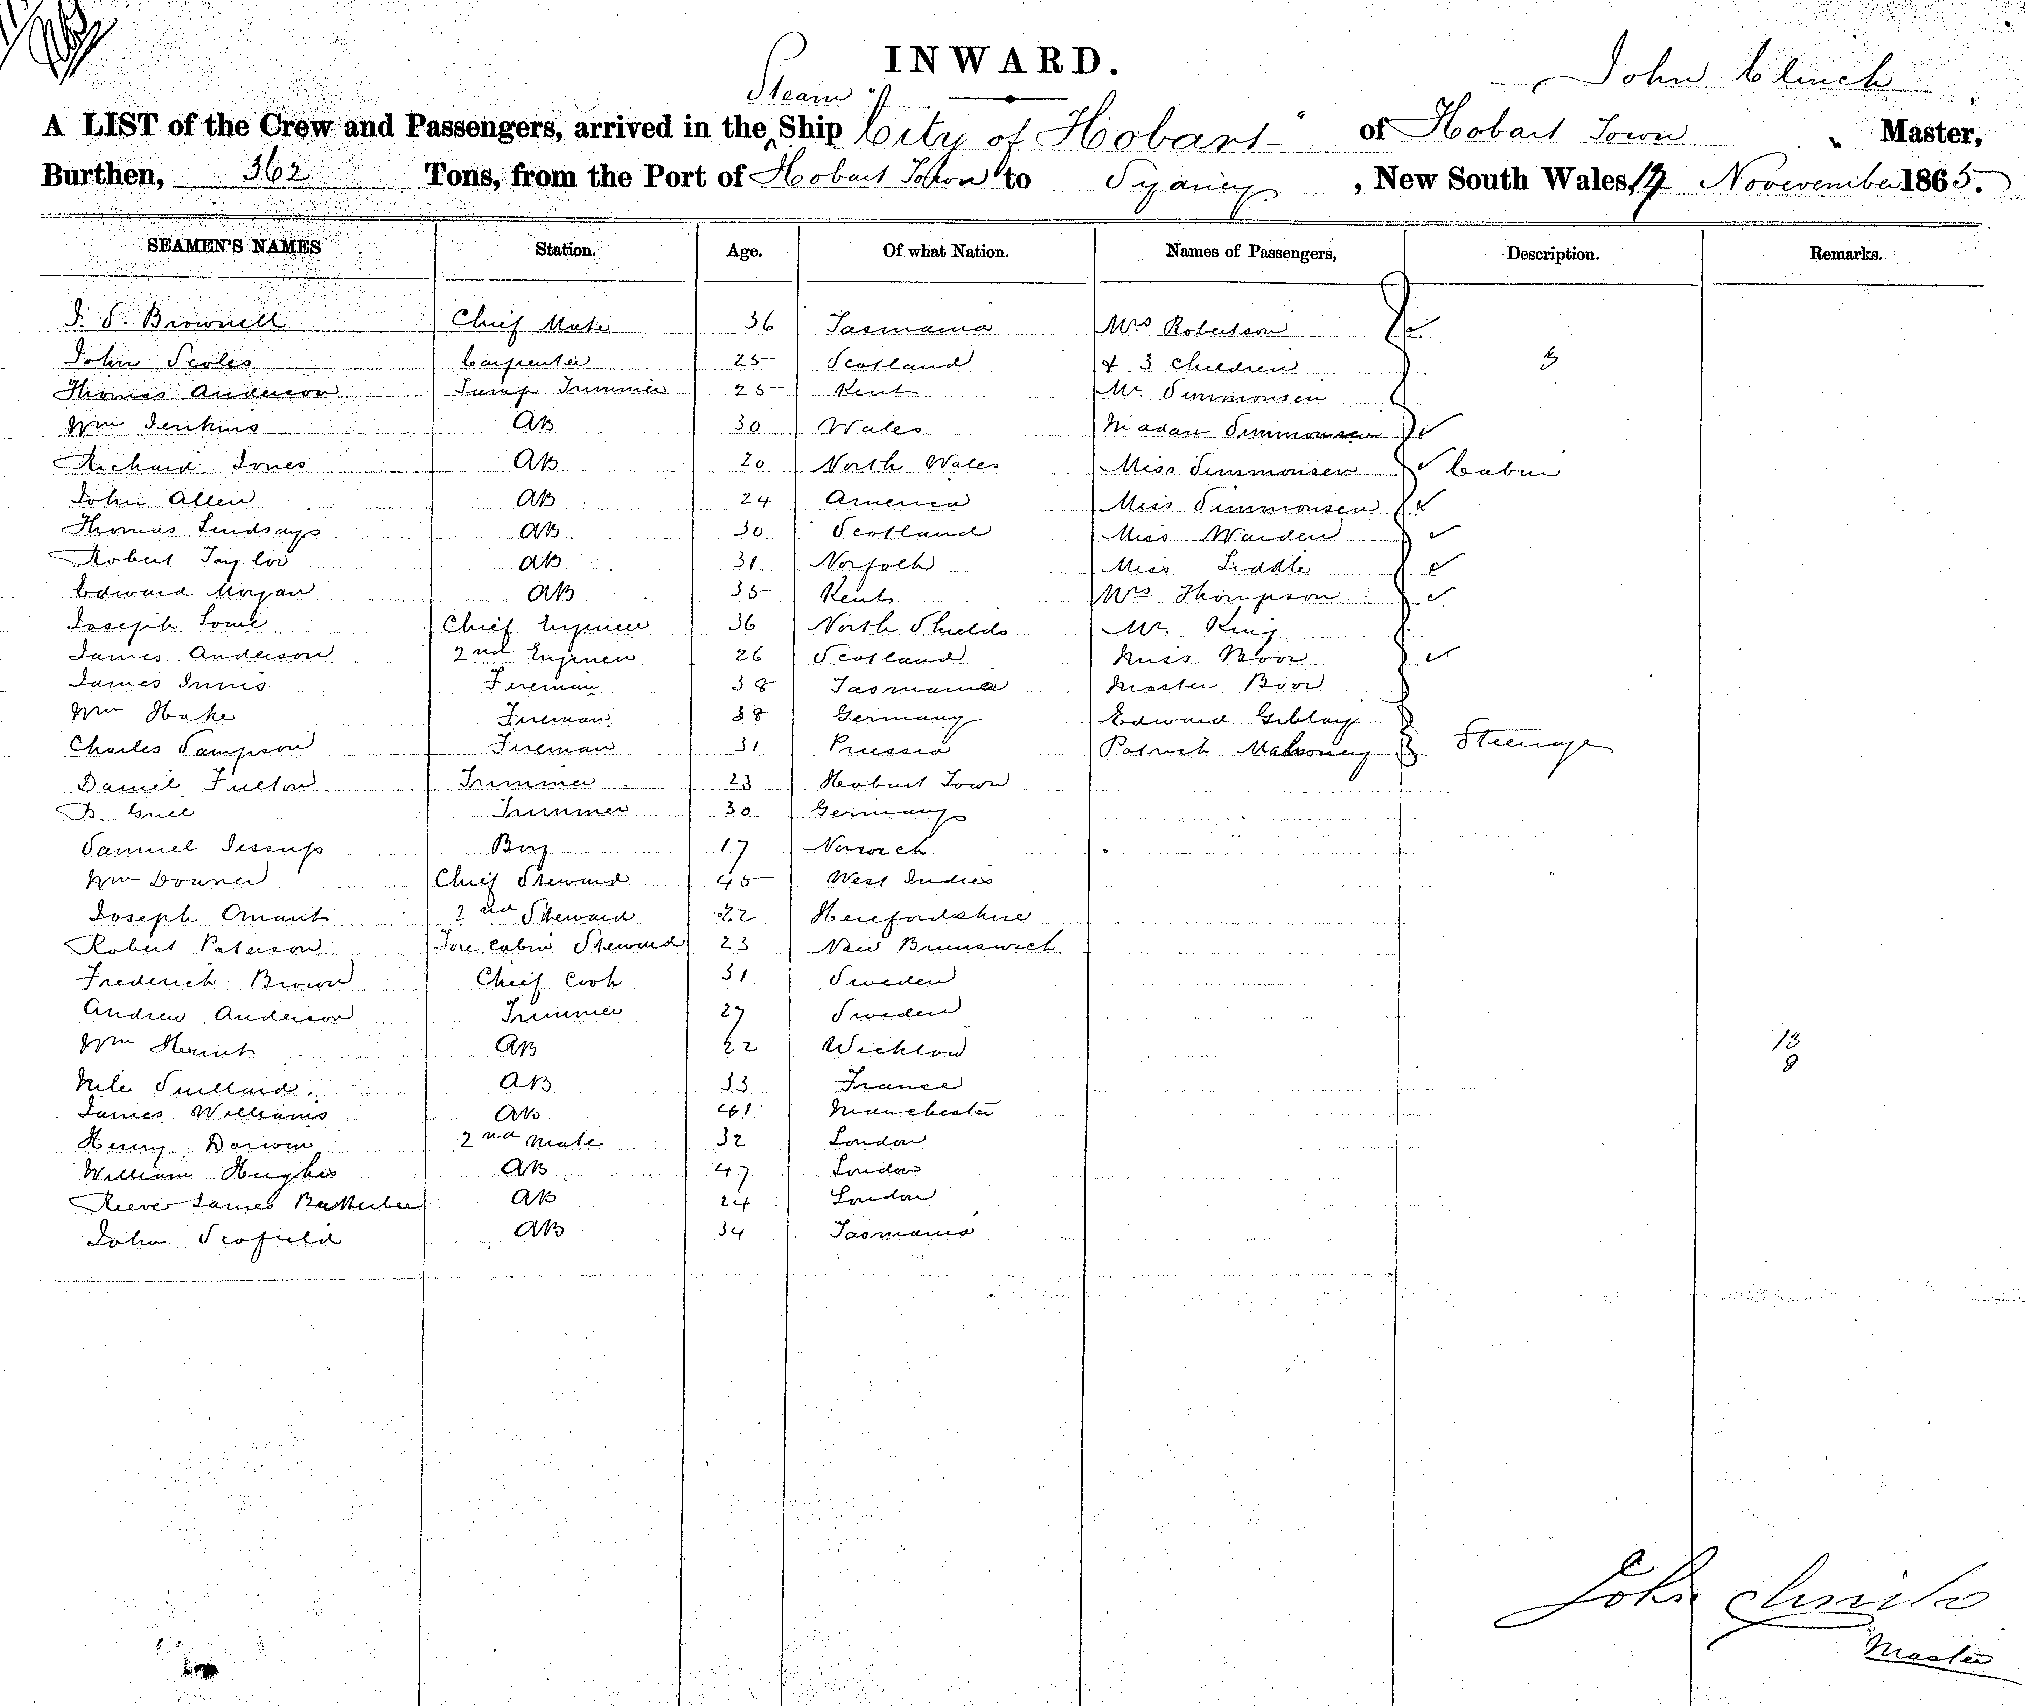 INWARD.
John Clinch
Steam
A LIST of the Crew and Passengers, arrived in the Ship "City of Hobart" of Hobart Town Master,
Burthen, 362 Tons, from the Port of Hobart Town to Sydney, New South Wales, 17 Novevember 1865.
SEAMEN'S NAMES Station. Age. Of what Nation. Names of Passengers, Description. Remarks.
J. S. Brownell Chief Mate 36 Tasmania Mrs Robertson
John Scoles Carpenter 25 Scotland & 3 Children 3
Thomas Anderson Lamp Trimmer 25 Kent Mr. Simmonsen
Wm Jenkins AB 30 Wales Madam Simmonsen
Richard Jones AB 20 North Wales Miss Simmonsen Cabin
John Allen AB 24 America Miss Simmonsen
Thomas Lindsay AB 30 Scotland Miss Warden
Robert Taylor AB 31 Norfolk Miss Liddle
Edward Morgan AB 35 Kent Mrs Thompson
Joseph AB Chief Engineer 36 North Shields Mr. King
James Anderson 2nd Engineer 26 Scotland Miss Boor
James Innis Fireman 38 Tasmania Master Boor
Wm Hake Fireman 38 Germany Edward Giblay
Charles Sampson Fireman 31 Prussia Patrick Mahoney Steerage
Daniel Fulton Trimmer 23 Hobart Town
B. Trimmer 30 Germany
Samuel Jessup Boy 17 Norwich
Wm Chief Steward 45 West Indies
Joseph 2nd Steward 22 Herefordshire
Robert Paterson Fore Cabin Steward 23 New Brunswick
Frederick Brown Chief Cook 31 Sweden
Andrew Anderson Trimmer 27 Sweden
Wm AB 22 Wicklow 13
AB 33 France 8
James Williams AB 41 Manchester
Henry Darwin 2nd Mate 32 London
William Hughes AB 47 London
James AB 24 London
John Scofield AB 34 Tasmania
John Clinch
Master